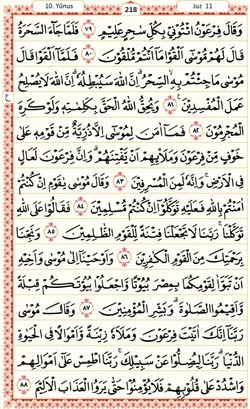 10. Yûnus
218
Juz 11
وَقَالَ فِرْعَوْنُ ائْتُونِي بِكُلِّ سَاحِرٍ عَلِيمٍ ٧٩ فَلَمَّا جَاءَ السَّحَرَةُ
قَالَ لَهُمْ مُوسٰى اَلْقُوا مَا اَنْتُمْ مُلْقُونَ ٨٠ فَلَمَّا اَلْقَوْا قَالَ
مُوسٰى مَا جِئْتُمْ بِهِ السِّحْرُ اِنَّ اللّٰهَ سَيُبْطِلُهُ اِنَّ اللّٰهَ لَا يُصْلِحُ
عَمَلَ الْمُفْسِدِينَ ٨١ وَيُحِقُّ اللّٰهُ الْحَقَّ بِكَلِمَاتِهِ وَلَوْ كَرِهَ
الْمُجْرِمُونَ ٨٢ فَمَا اٰمَنَ لِمُوسٰى اِلَّا ذُرِّيَّةٌ مِنْ قَوْمِهِ عَلٰى
خَوْفٍ مِنْ فِرْعَوْنَ وَمَلَائِهِمْ اَنْ يَفْتِنَهُمْ وَاِنَّ فِرْعَوْنَ لَعَالٍ
فِي الْاَرْضِ وَاِنَّهُ لَمِنَ الْمُسْرِفِينَ ٨٣ وَقَالَ مُوسٰى يَا قَوْمِ اِنْ كُنْتُمْ
اٰمَنْتُمْ بِاللّٰهِ فَعَلَيْهِ تَوَكَّلُوا اِنْ كُنْتُمْ مُسْلِمِينَ ٨٤ فَقَالُوا عَلَى اللّٰهِ
تَوَكَّلْنَا رَبَّنَا لَا تَجْعَلْنَا فِتْنَةً لِلْقَوْمِ الظَّالِمِينَ ٨٥ وَنَجِّنَا
بِرَحْمَتِكَ مِنَ الْقَوْمِ الْكَافِرِينَ ٨٦ وَاَوْحَيْنَا اِلٰى مُوسٰى وَاَخِيهِ
اَنْ تَبَوَّاٰ لِقَوْمِكُمَا بِمِصْرَ بُيُوتًا وَاجْعَلُوا بُيُوتَكُمْ قِبْلَةً
وَاَقِيمُوا الصَّلٰوةَ وَبَشِّرِ الْمُؤْمِنِينَ ٨٧ وَقَالَ مُوسٰى
رَبَّنَا اِنَّكَ اٰتَيْتَ فِرْعَوْنَ وَمَلَاَهُ زِينَةً وَاَمْوَالًا فِي الْحَيٰوةِ
الدُّنْيَا رَبَّنَا لِيُضِلُّوا عَنْ سَبِيلِكَ رَبَّنَا اطْمِسْ عَلٰى اَمْوَالِهِمْ
وَاشْدُدْ عَلٰى قُلُوبِهِمْ فَلَا يُؤْمِنُوا حَتّٰى يَرَوُا الْعَذَابَ الْاَلِيمَ ٨٨